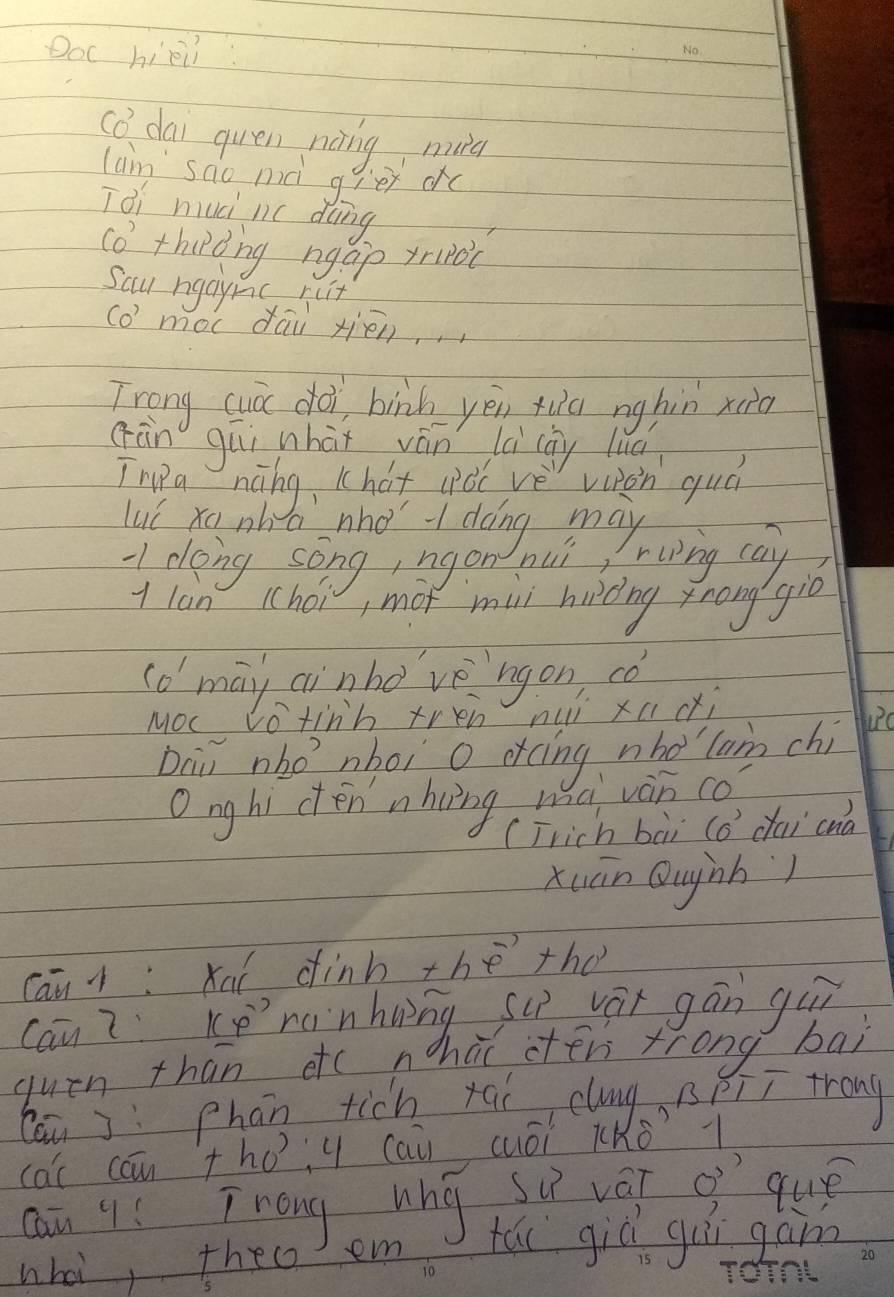 Đọc hiểu:
No.
Cỏ dại quen nắng mưa
Làm sao mà giết đc
Tới mùa nc dâng
Cỏ thường ngập trước
Sau ngày nc rút
Cỏ mọc đầu tiên...
Trong cuộc đời, bình yên tựa nghìn xưa
Gần gũi nhất vẫn là cây lúa
Trưa nắng, khát ước về vườn quả
lúc xa nhà nhớ 1 dáng mây
1 dòng sông, ngọn núi, rừng cây,
1 làn khói, một mùi hương trong gió
Có mấy ai nhớ về ngọn cỏ
Mọc vô tình trên núi ta đi
Dẫu nhỏ nhoi O đáng nhớ làm chi
O nghĩ đến nhưng mà vẫn có
(Trích bài cỏ dại của
Xuân Quỳnh)
Câu 1: Xác định thể thơ
Câu 2: Kể ra những sự vật gần gũi
quen thân đc nhắc đến trong bài
Câu 3: Phân tích tác dụng BPTT trong
các câu thơ: 4 câu cuối khổ 1
Câu 4: Trong nhg sự vật ở quê
nhà, theo em tác giả gửi gắm
5 10 15 20
TOTAL